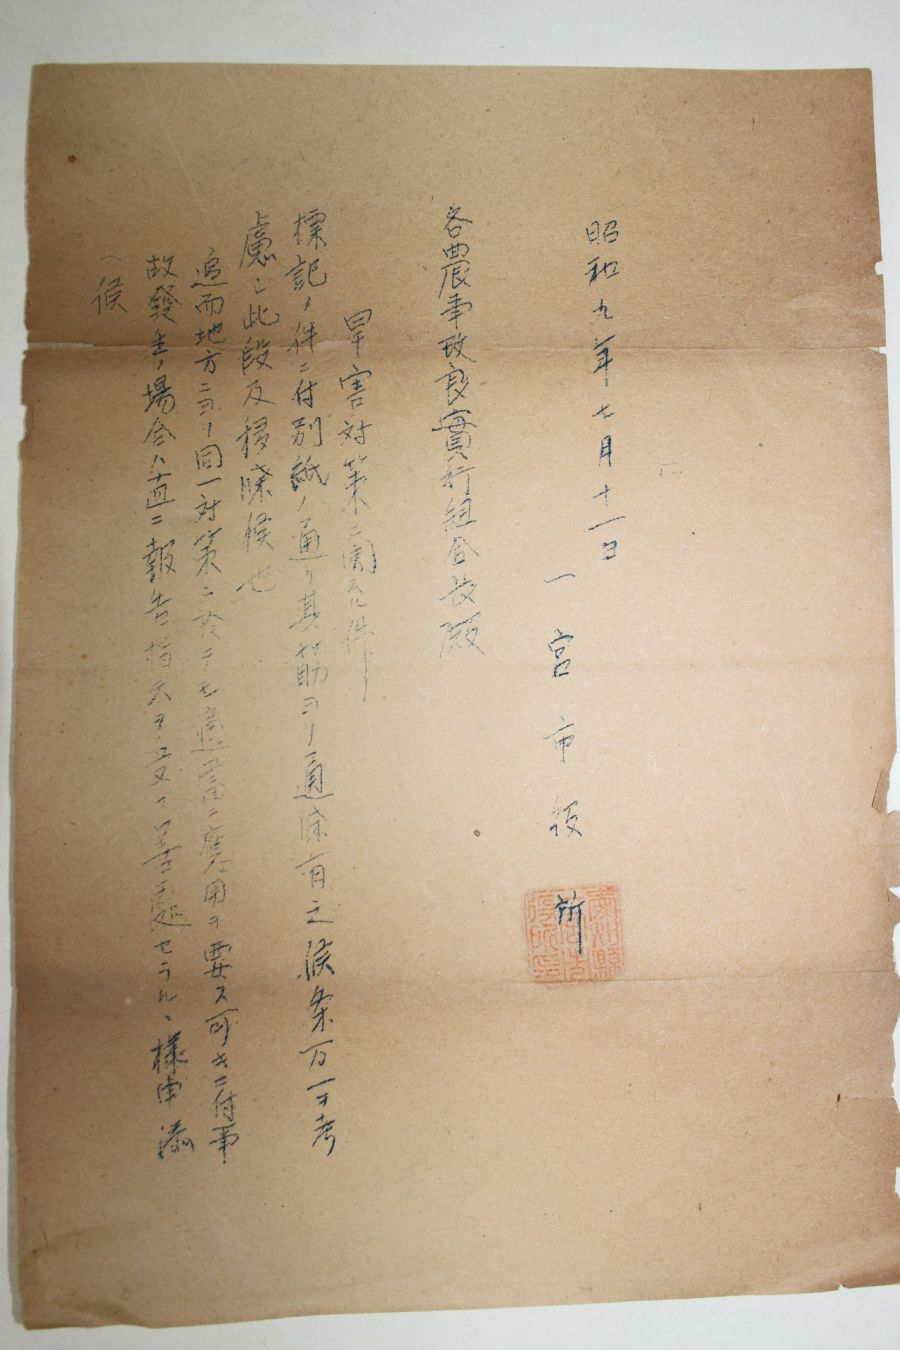 昭和九年七月十一日
一宮市役所
愛知縣
各農事改良實行組合長殿
旱害対策ニ関スル件
標記ノ件ニ付別紙ノ通リ其筋ヨリ通牒有之候条万一ヲ考
慮シ此段及移牒候也
追而地方ニヨリ同一対策ニ於テモ適当ニ應用ヲ要ス可キニ付事
故發生ノ場合ハ直ニ報告指示ヲ受ケ善處セラルヽ様申添
ヘ候